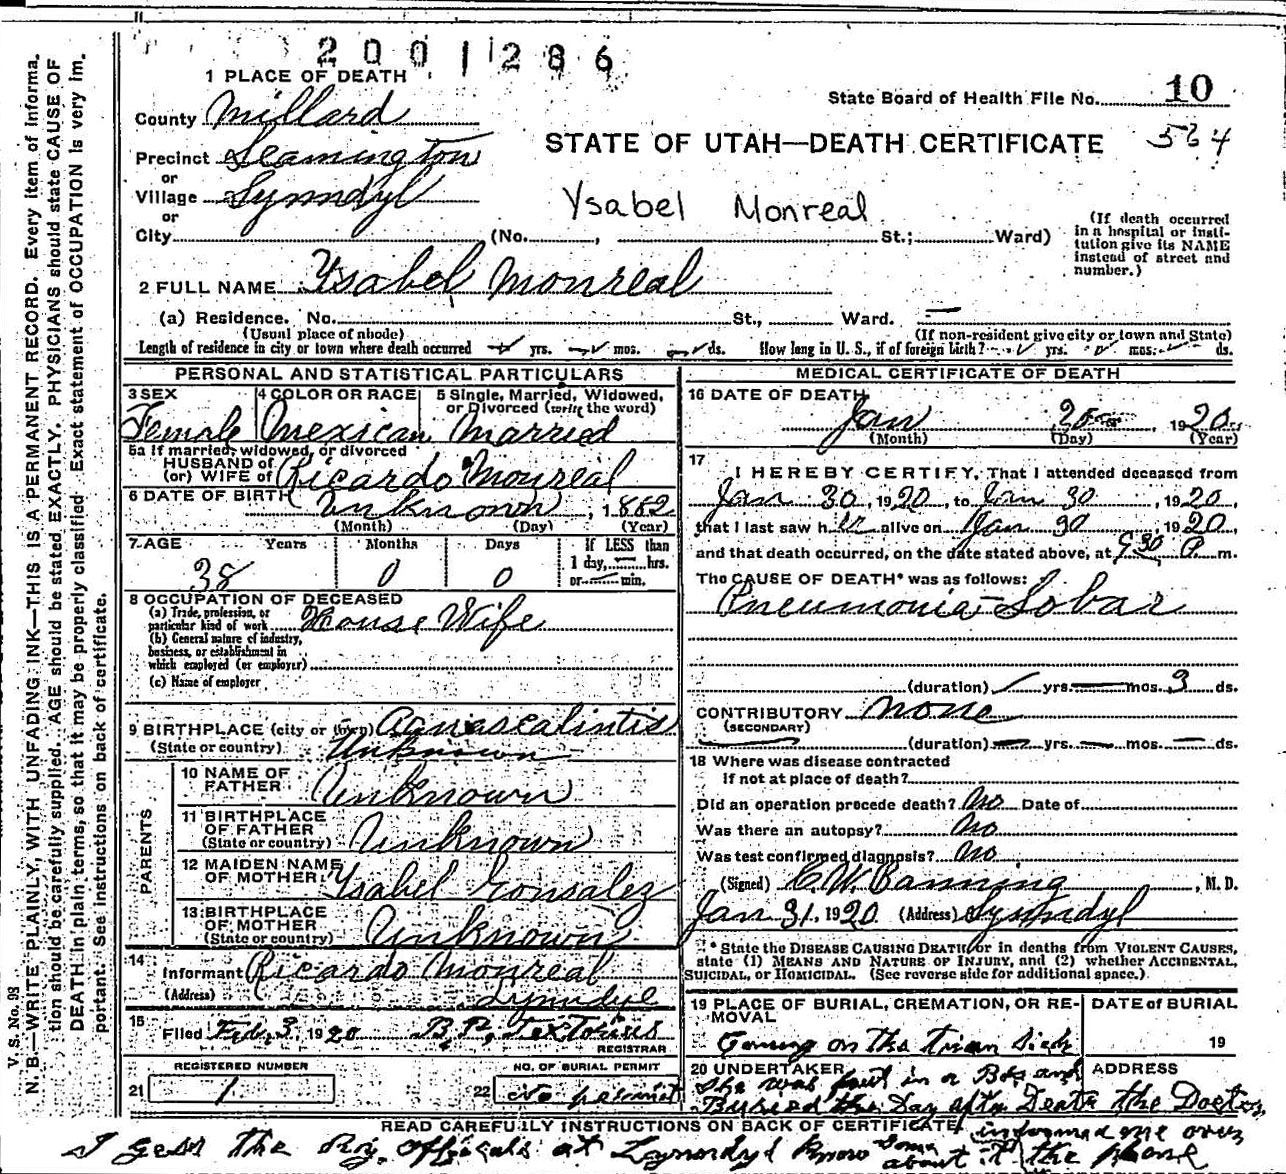 2001286
1 PLACE OF DEATH
State Board of Health File No. 10
County Millard
STATE OF UTAH—DEATH CERTIFICATE 564
Precinct Leamington
or
Village Lynndyl
Ysabel Monreal
or
City (No. , St.; Ward)
(If death occurred
in a hospital or insti-
tution give its NAME
instead of street and
number.)
2 FULL NAME Ysabel Monreal
(a) Residence. No. St., Ward.
(Usual place of abode) (If non-resident give city or town and State)
Length of residence in city or town where death occurred yrs. mos. ds. How long in U. S., if of foreign birth? yrs. mos. ds.
PERSONAL AND STATISTICAL PARTICULARS
3 SEX 4 COLOR OR RACE 5 Single, Married, Widowed,
or Divorced (write the word)
Female Mexican Married
5a If married, widowed, or divorced
HUSBAND of
(or) WIFE of Ricardo Monreal
6 DATE OF BIRTH Unknown, 1882
(Month) (Day) (Year)
7 AGE Years Months Days If LESS than
1 day, hrs.
38 0 0 or min.
8 OCCUPATION OF DECEASED
(a) Trade, profession, or
particular kind of work House Wife
(b) General nature of industry,
business, or establishment in
which employed (or employer)
(c) Name of employer
9 BIRTHPLACE (city or town)
(State or country) Unknown
PARENTS
10 NAME OF
FATHER Unknown
11 BIRTHPLACE
OF FATHER
(State or country) Unknown
12 MAIDEN NAME
OF MOTHER Ysabel Gonsalez
13 BIRTHPLACE
OF MOTHER
(State or country) Unknown
14
Informant Ricardo Monreal
(Address) Lynndyl
15 Filed Feb. 3, 1920 B. P. Textorius
REGISTRAR
REGISTERED NUMBER NO. OF BURIAL PERMIT
21 1 22 no permit
MEDICAL CERTIFICATE OF DEATH
16 DATE OF DEATH
Jan 1920
(Month) (Day) (Year)
17
I HEREBY CERTIFY, That I attended deceased from
Jan 30, 1920, to Jan 30, 1920,
that I last saw her alive on Jan 30, 1920,
and that death occurred, on the date stated above, at 9 30 P m.
The CAUSE OF DEATH* was as follows:
Pneumonia-Lobar
(duration) yrs. mos. 3 ds.
CONTRIBUTORY none
(SECONDARY)
(duration) yrs. mos. ds.
18 Where was disease contracted
if not at place of death?
Did an operation precede death? No Date of
Was there an autopsy? No
Was test confirmed diagnosis? No
(Signed) C. W. Banning, M. D.
Jan 31, 1920 (Address) Lynndyl
* State the DISEASE CAUSING DEATH, or in deaths from VIOLENT CAUSES,
state (1) MEANS AND NATURE OF INJURY, and (2) whether ACCIDENTAL,
SUICIDAL, or HOMICIDAL. (See reverse side for additional space.)
19 PLACE OF BURIAL, CREMATION, OR RE-
MOVAL
DATE of BURIAL
on the 19
20 UNDERTAKER ADDRESS
She was put in a Box and
Buried the Day after Death the Doctor
informed me over
the phone
READ CAREFULLY INSTRUCTIONS ON BACK OF CERTIFICATE
I gess the officals at Lynndyl know some
about it
V. S. No. 98
N. B.—WRITE PLAINLY, WITH UNFADING INK—THIS IS A PERMANENT RECORD. Every item of informa-
tion should be carefully supplied. AGE should be stated EXACTLY. PHYSICIANS should state CAUSE OF
DEATH in plain terms, so that it may be properly classified. Exact statement of OCCUPATION is very im-
portant. See instructions on back of certificate.